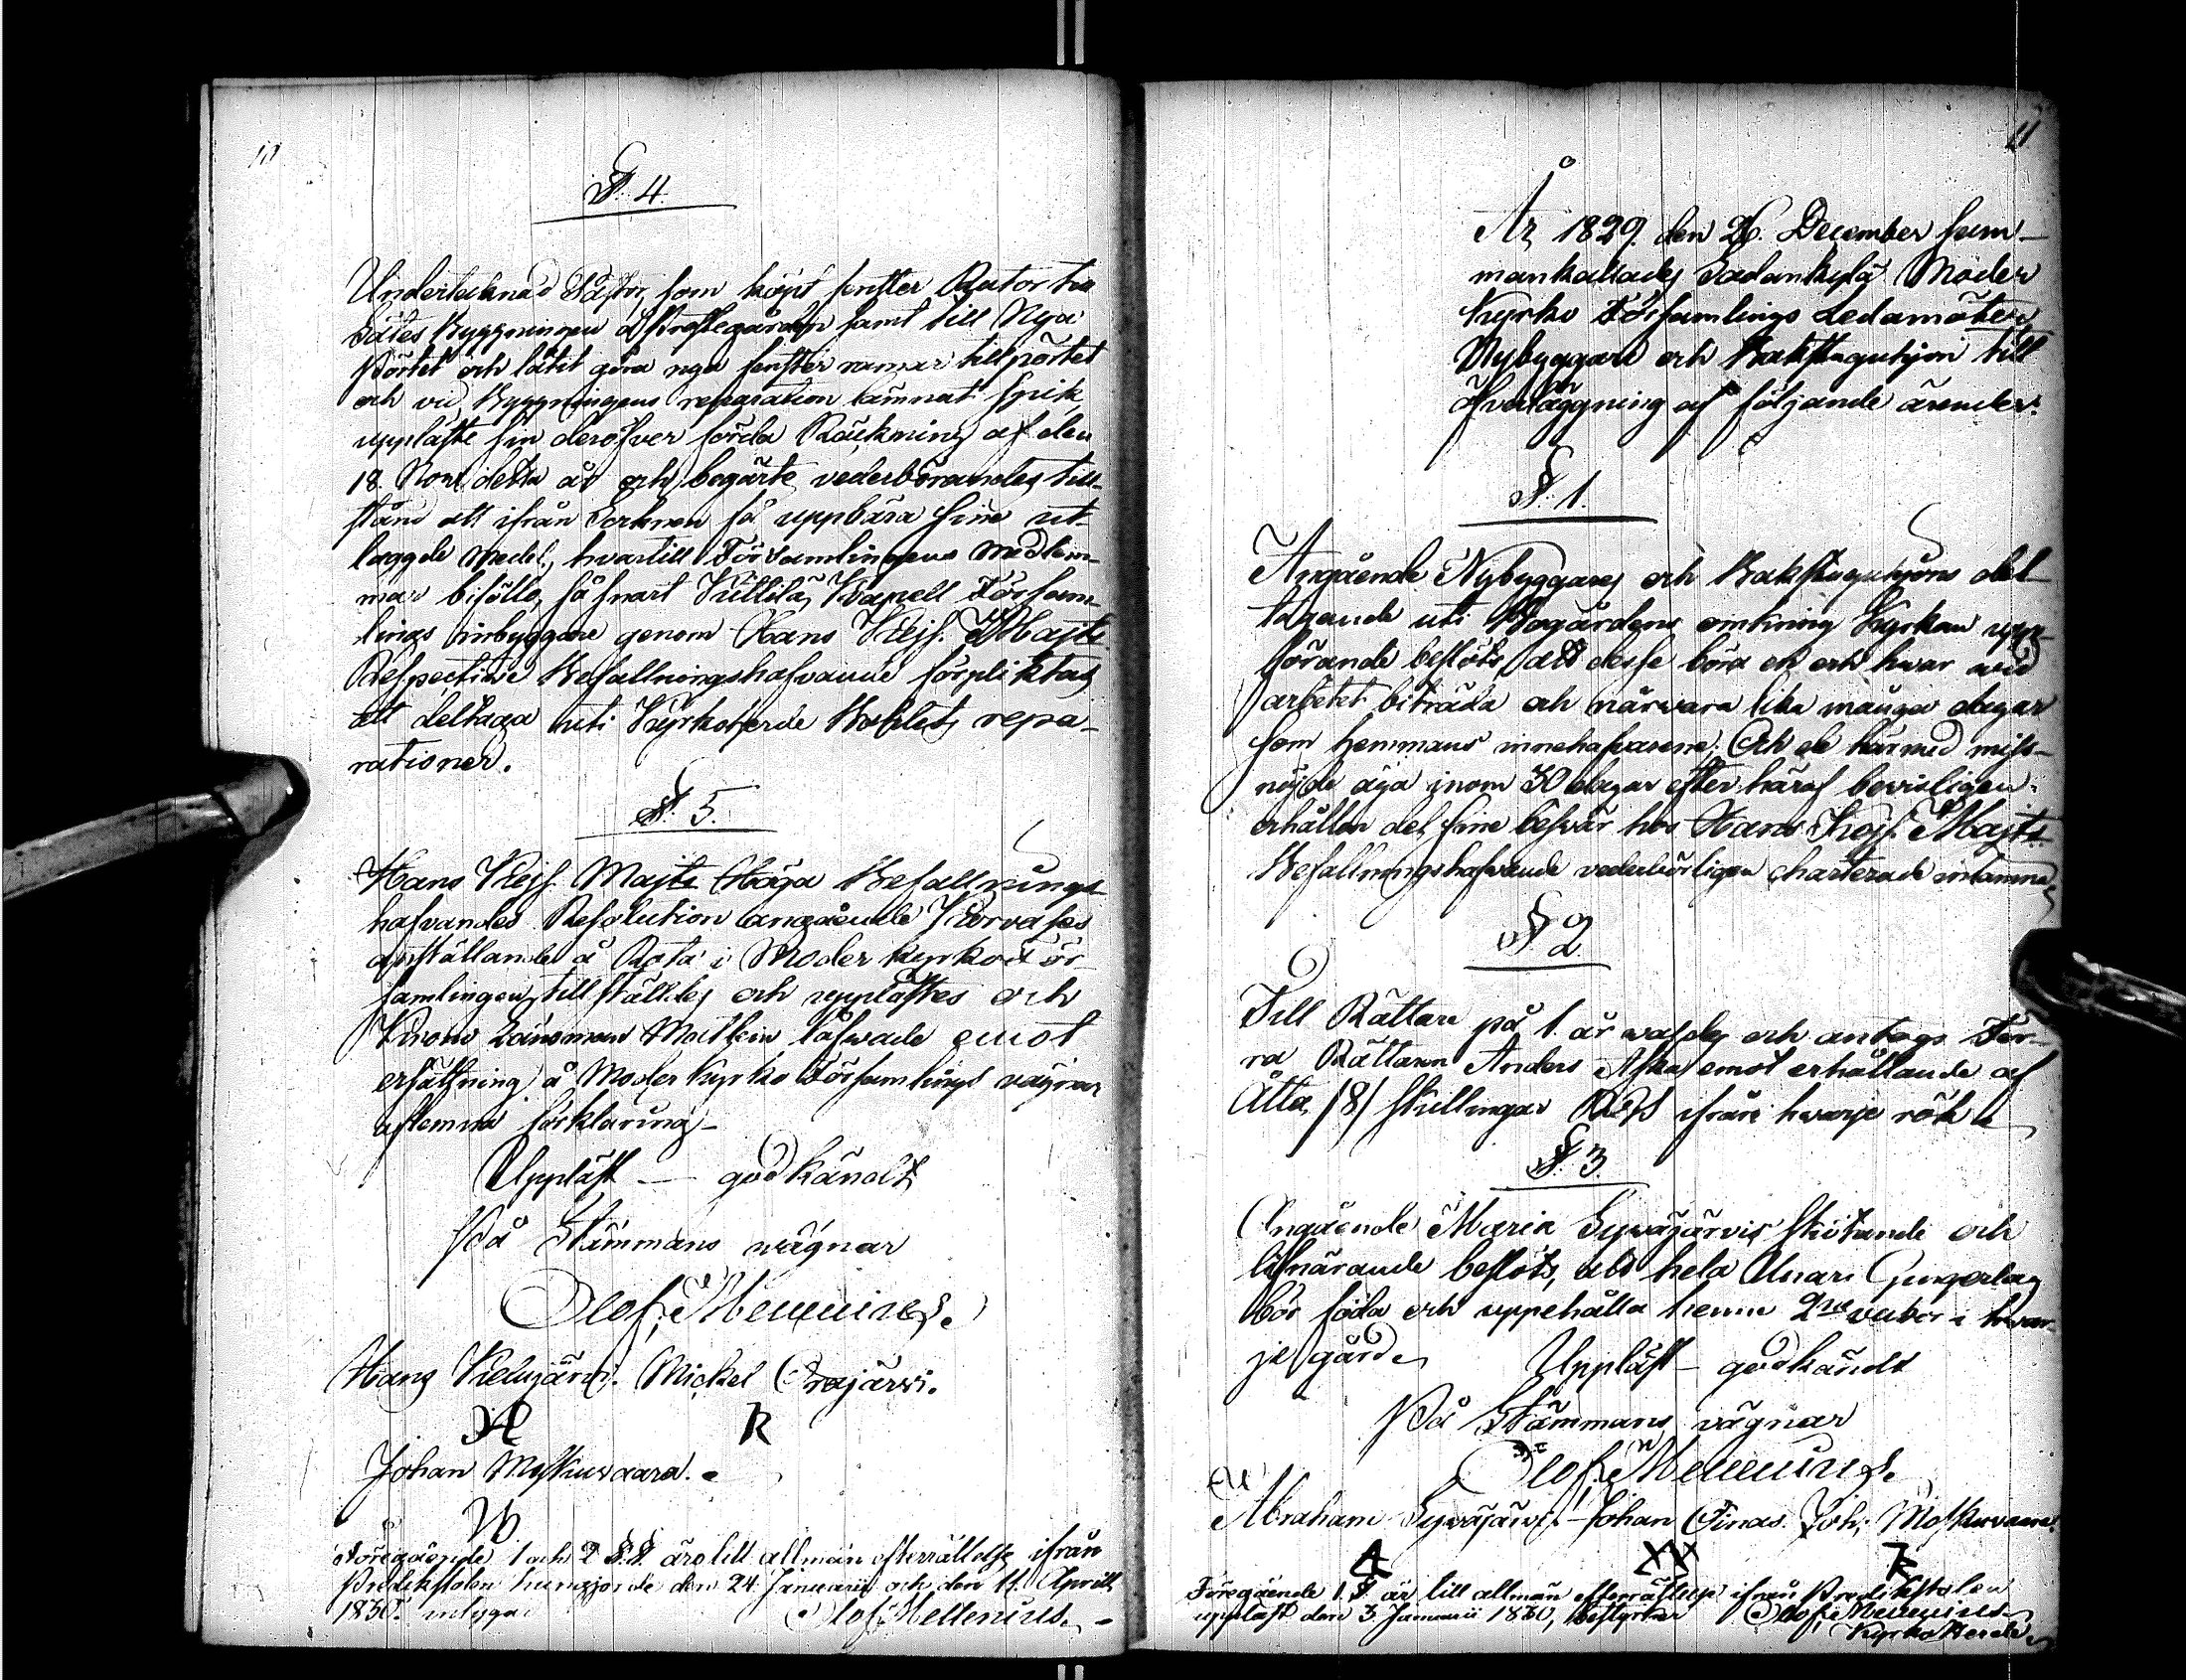 10
§. 4.
Undertecknad Pastor, som köpt fenster Rutor till
Sätes Byggningen å Prestegården samt till Nya
Pörtet och låtit göra nya fenster ramar till pörtet
och vid Byggningens reparation lämnat spik,
uppläste sin deröfver förda Räckning af den
18. Nov. detta år och begärte vederbörandes till-
stånd att ifrån Socknen få uppbära sine ut-
laggde Medel, hvartill Församlingens medlem-
mar biföllo, så snart Kittilä Kapell Försam-
lings innbyggare genom Hans Kejs. Majts
Respective Befallningshafvande förpliktas
att deltaga uti Kyrkoherde Bohlets repa-
rationer.
§. 5.
Hans Kejs. Majts Höga Befallnings-
hafvandes Resolution angående
anställande å i Moder kyrko För-
samlingen, tillställdes och upplästes och
Krono Länsman låfwade emot
ersättning å Moder Kyrko Församlings vägnar
aflemna förklaring_
Uppläst — godkändt
På Stämmans wägnar
Olof Mellenius.
Hans Kieluijärvi. Mickel Orajärvi.
R
Johan Moskuwaara.
Föregående 1 och 2 §.§. äro till allmän efterrättelse ifrån
Predikstolen kungjorde den 24. Januarii och den 11. Aprill
1830. intygar Olof Mellenius.
11
År 1829. den 26. December sam-
mankallades Sodankylä Moder
Kyrko Församlings Ledamöter
Nybyggare och Bakstuguhjon till
öfverläggning af följande ärender:
§. 1.
Angående Nybyggares och Bakstuguhjons del-
tagande uti Bogårdens omkring Kyrkan upp-
förande beslöts, att desse böra en och hwar wid
arbetet biträda och närwara lika många dagar
som hemmans innehafvarene; Och de härmed miss-
nöjde äga inom 30 dagar efter häraf bevisligen
erhållen del sine besvär hos Hans Kejs. Majts
Befallningshafvande vederbörligen charterade inlämna
§ 2
Till Rättare på 1. år waldes och antogs För-
ra Rättaren Anders Aska emot erhållande af
Åtta /8/ Skillingar RGS ifrån hwarje rök
§. 3.
Angående Maria Sywäjärvis skötande och
lifnärande beslöts, att hela Unari Gingerlag
bör föda och uppehålla henne 2ne veckor i hwar-
je gård. Uppläst — godkändt
På Stämmans vägnar
Olof Mellenius.
Abraham Sywäjärvi. Johan Oinas. Joh: Moskuwaara.
Föregående 1. §. är till allmän efterrättelse ifrån Predikstolen
uppläst den 3. Januarii 1830, bestyrker Olof Mellenius
Kyrko Herde